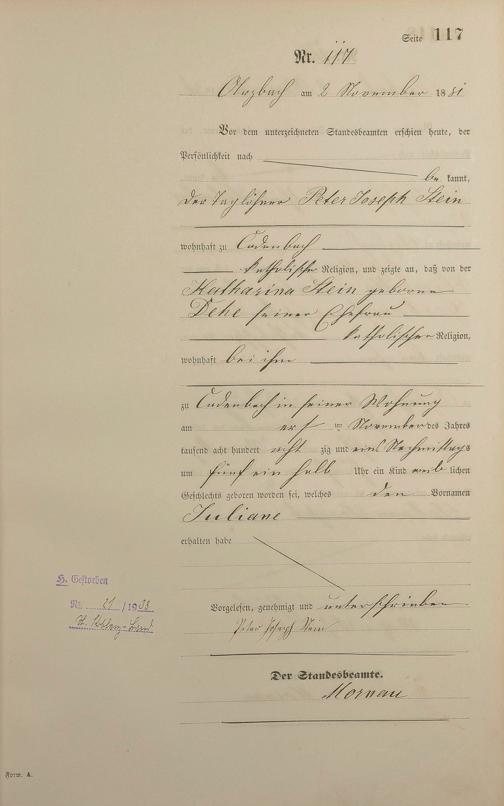 Seite 117
Nr. 117
Arzbach am 2 November 18 81
Vor dem unterzeichneten Standesbeamten erschien heute, der
Persönlichkeit nach
be kannt,
der Taglöhner Peter Joseph Stein
wohnhaft zu Cadenbach
katholischer Religion, und zeigte an, daß von der
Katharina Stein geborne
Dehe seiner Ehefrau
katholischer Religion,
wohnhaft bei ihm
zu Cadenbach in seiner Wohnung
am ersten November des Jahres
tausend acht hundert acht zig und eins Nachmittags
um fünf ein halb Uhr ein Kind weib lichen
Geschlechts geboren worden sei, welches den Vornamen
Juliane
erhalten habe
H. Gestorben
Nr. 21 /1933
Vorgelesen, genehmigt und unterschrieben
Peter Joseph Stein
Der Standesbeamte.
Form. A.